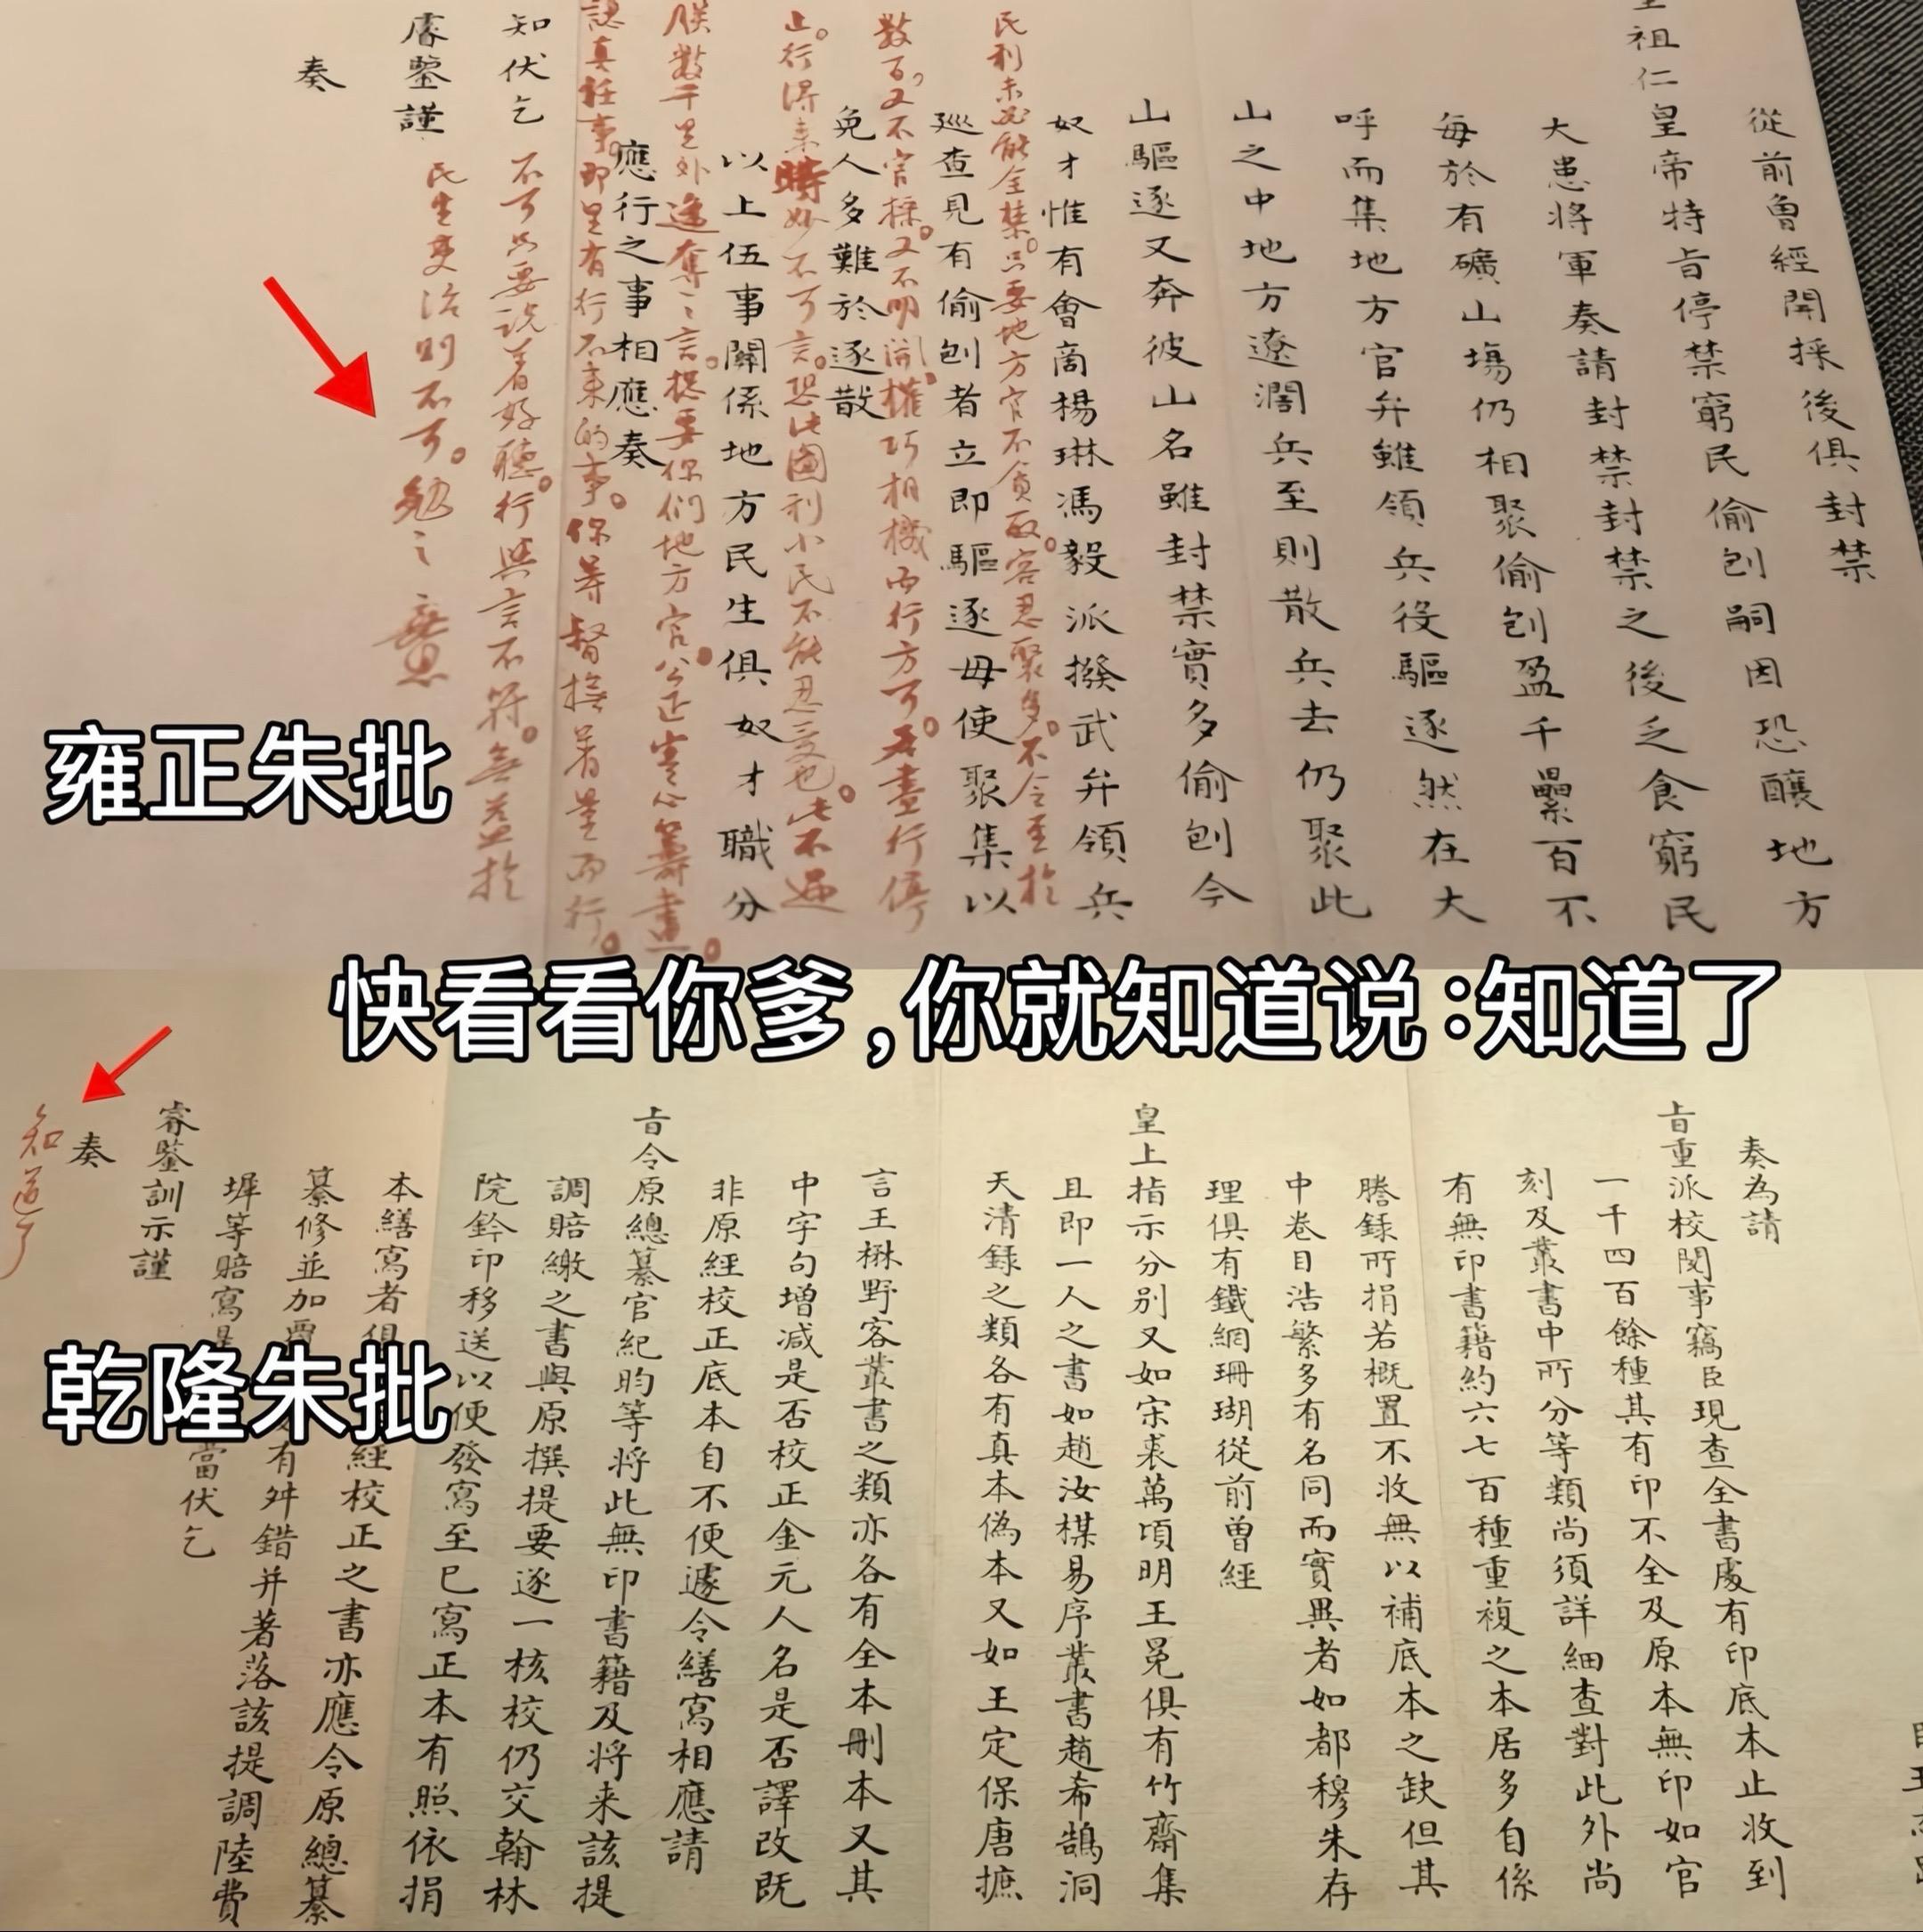 從前曾經開採後俱封禁
祖仁皇帝特旨停禁窮民偷刨嗣因恐釀地方
大患將軍奏請封禁封禁之後乏食窮民
每於有礦山塲仍相聚偷刨盈千纍百不
呼而集地方官弁雖領兵役驅逐然在大
山之中地方遼濶兵至則散兵去仍聚此
山驅逐又奔彼山名雖封禁實多偷刨今
奴才惟有會啇楊琳馮毅派撥武弁領兵
民利未必能全禁。只要地方官不貪取容忍聚多。不令至於
巡查見有偷刨者立即驅逐毋使聚集以
數百。又不官採。又不明開。權巧相機而行方可。若盡行停
免人多難於逐散
止。行得来時妙不可言。恐此圖利小民不能忍受也。此不過
以上伍事關係地方民生俱奴才職分
朕數千里外遙奪之言。總要你們地方官公正實心籌畫。
應行之事相應奏
認真任事。即里有行不来的事。你等督撫着量而行。
知伏乞
不可只要說着好聽。行與言不符。無益於
睿鑒謹
民生吏治則不可。勉之
奏
雍正朱批
快看看你爹,你就知道说:知道了
奏為請
旨重派校閱事竊臣現查全書處有印底本止收到
一千四百餘種其有印不全及原本無印如官
刻及叢書中所分等類尚須詳細查對此外尚
有無印書籍約六七百種重複之本居多自係
謄録所捐若概置不收無以補底本之缺但其
中卷目浩繁多有名同而實異者如都穆朱存
理俱有鐵網珊瑚從前曾經
皇上指示分別又如宋裘萬頃明王冕俱有竹齋集
且即一人之書如趙汝楳易序叢書趙希鵠洞
天清録之類各有真本偽本又如王定保唐摭
言王楙野客叢書之類亦各有全本刪本又其
中字句增減是否校正金元人名是否譯改既
非原經校正底本自不便遽令繕寫相應請
旨令原總纂官紀昀等將此無印書籍及將来該提
調賠繳之書與原撰提要逐一核校仍交翰林
院鈐印移送以便發寫至已寫正本有照依捐
本繕寫者俱經校正之書亦應令原總纂
纂修並加覆有舛錯并著落該提調陸費
墀等賠寫是當伏乞
睿鑒訓示謹
奏
知道了
乾隆朱批